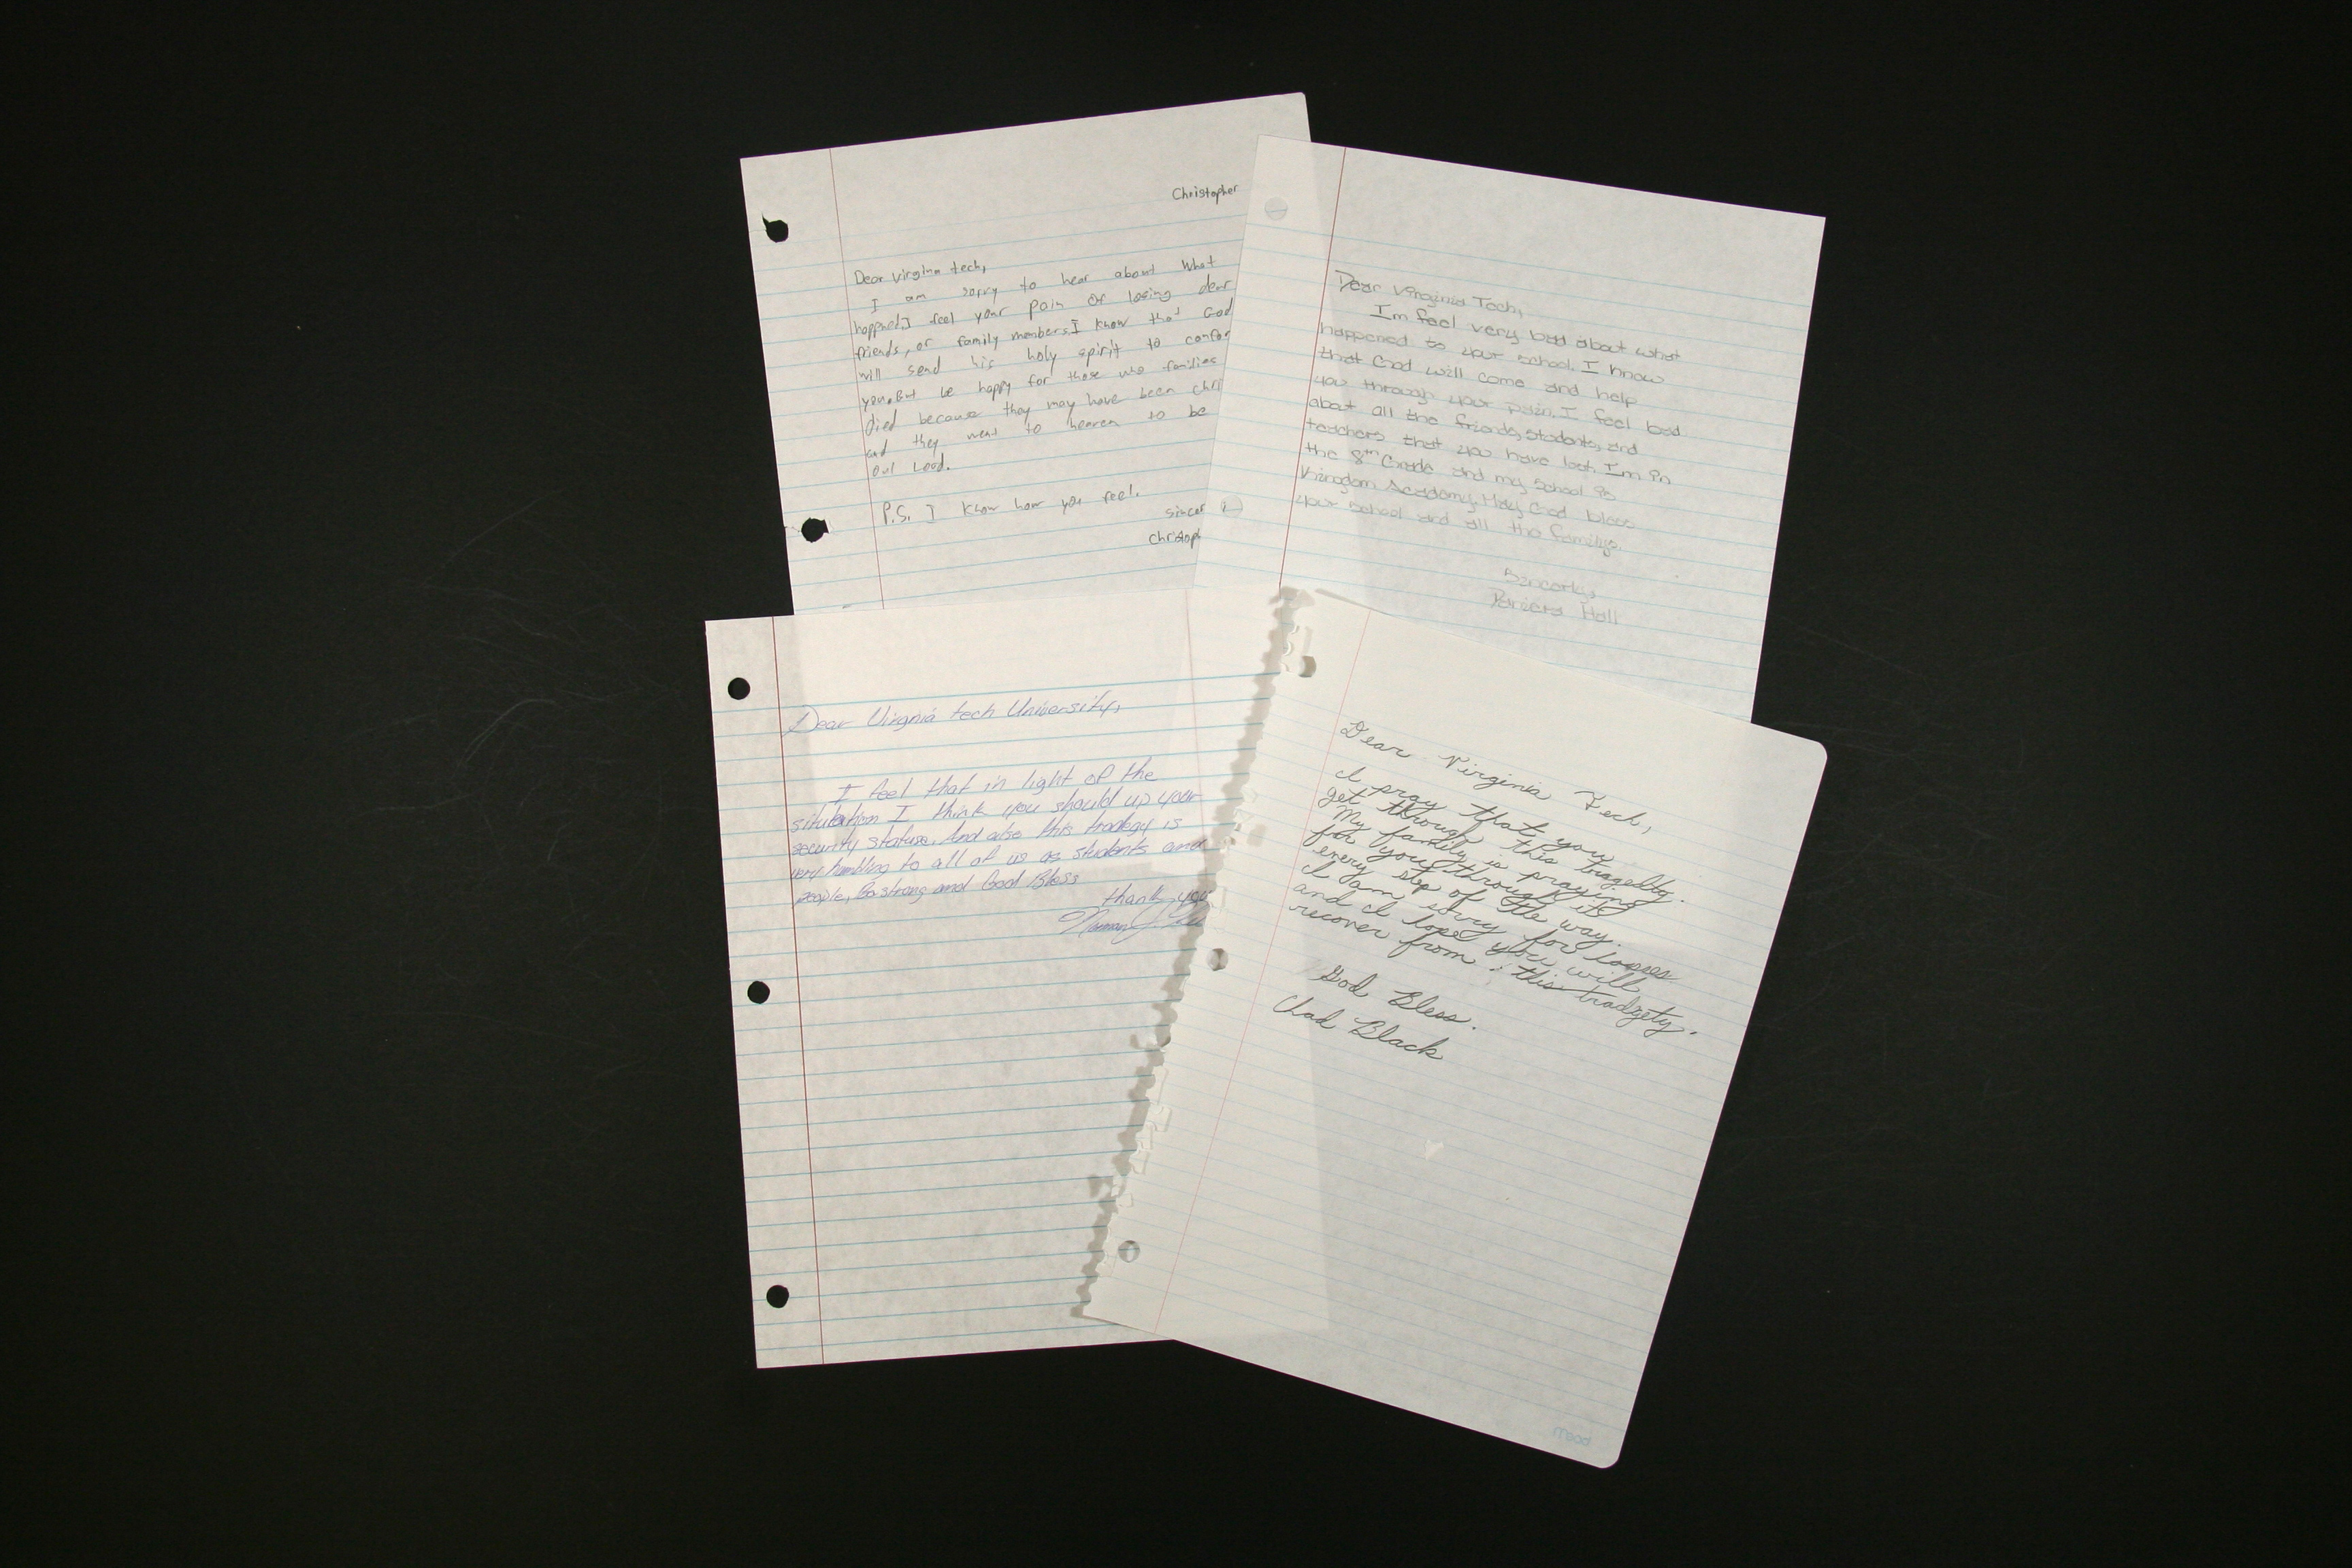 Christopher
Dear Virginia tech,
I am sorry to hear about What
happned. I feel your pain of losing dear
friends, or family members. I know that God
will send his holy spirit to comfor
you. But be happy for those who families
died because they may have been chri
and they went to heaven to be
our Lord.
P.S. I know how you feel.
sincer
christoph
Dear Virginia Tech,
Im feel very bad about what
happened to your school. I know
that God will come and help
you through your pain. I feel bad
about all the friends, students, and
teachers that you have lost. Im in
the 8th Grade and my school is
Kingdom Academy. May God bless
your school and all the familys.
Sincerly,
Hall
Dear Virginia tech University,
I feel that in light of the
situation I think you should up your
security statuse. And also this tradegy is
very humbling to all of us as students and
people, Be strong and God Bless
thank you
Norman J.
Dear Virginia Tech,
I pray that you
get through this tragedity.
My family is praying
for you through its
every step of the way.
I am sorry for losses
and I hope you will
recover from this tradgety.
God Bless.
Chad Black
Mead